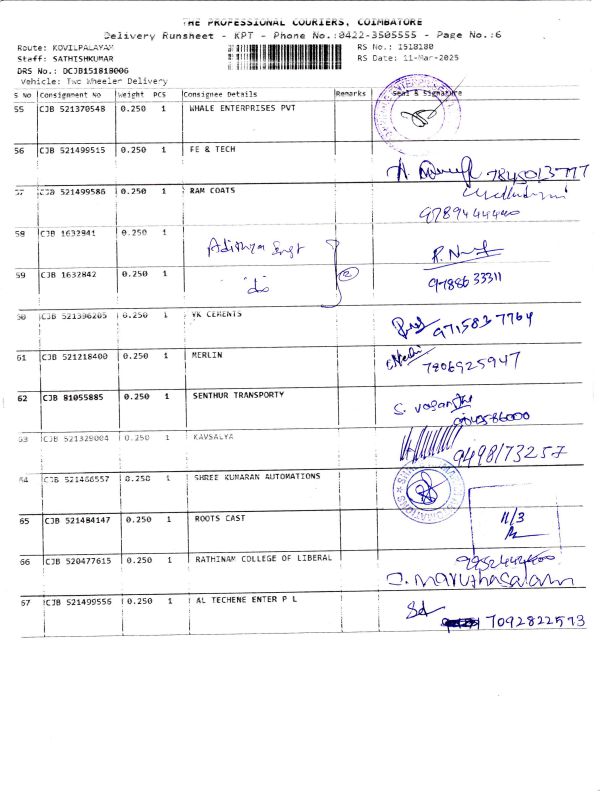 THE PROFESSIONAL COURIERS, COIMBATORE
Delivery Runsheet - KPT - Phone No.:0422-3505555 - Page No.:6
Route: KOVILPALAYAM
RS No.: 1518180
Staff: SATHISHKUMAR
RS Date: 11-Mar-2025
DRS No.: DCJB151818006
Vehicle: Two Wheeler Delivery
S No Consignment No Weight PCS Consignee Details Remarks Seal & Signature
55 CJB 521370548 0.250 1 WHALE ENTERPRISES PVT
56 CJB 521499515 0.250 1 FE & TECH
7845013777
57 CJB 521499586 0.250 1 RAM COATS
9789444400
58 CJB 1632841 0.250 1
59 CJB 1632842 0.250 1 do 2 9788633311
60 CJB 521396205 0.250 1 YK CEMENTS
9715837764
61 CJB 521218400 0.250 1 MERLIN
7806925947
62 CJB 81055885 0.250 1 SENTHUR TRANSPORTY
S. Vasantha
63 CJB 521329004 0.250 1 KAVSALYA
9498173257
64 CJB 521466557 0.250 1 SHREE KUMARAN AUTOMATIONS
65 CJB 521484147 0.250 1 ROOTS CAST
11/3
66 CJB 520477615 0.250 1 RATHINAM COLLEGE OF LIBERAL
J. Maruthasalam
67 CJB 521499556 0.250 1 AL TECHENE ENTER P L
7092822573